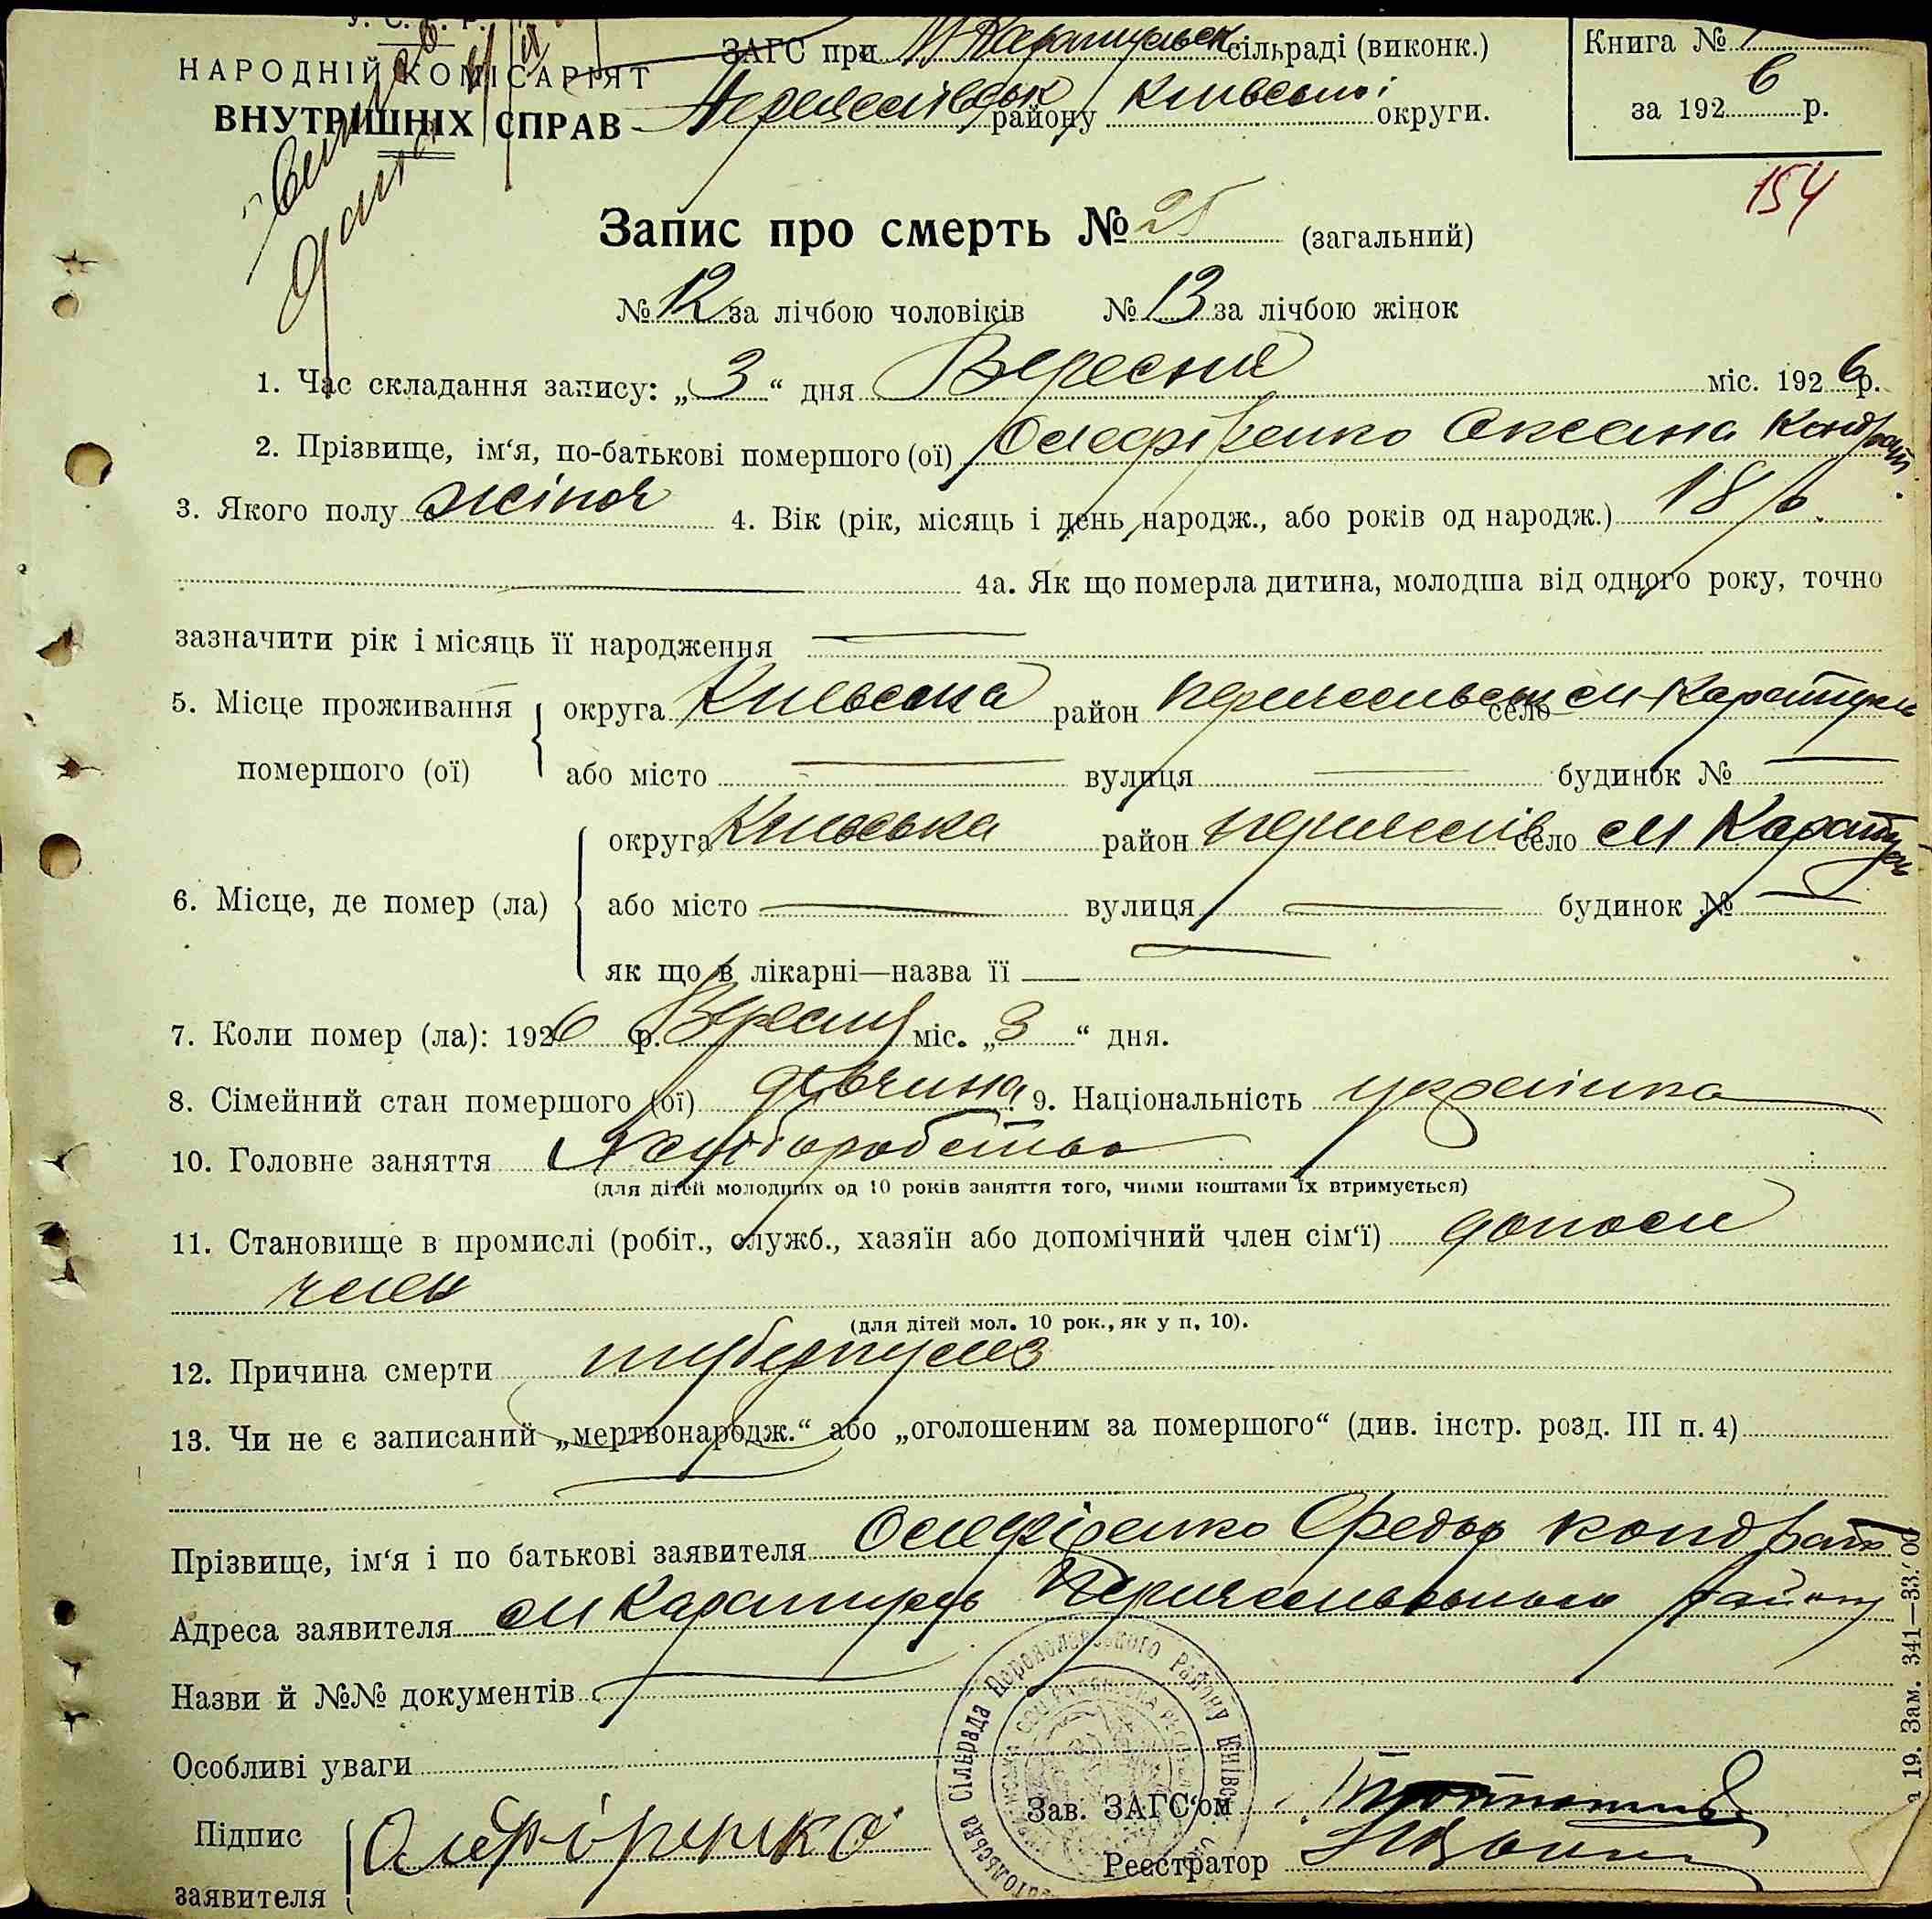 У. С. Р. Р.
НАРОДНІЙ КОМІСАРІЯТ
ВНУТРІШНІХ СПРАВ
ЗАГС при М Каратульськ сільраді (виконк.)
района Київської округи.
Книга №
за 1926 р.
154
Запис про смерть № 25 (загальний)
№ 12 за лічбою чоловіків № 13 за лічбою жінок
1. Час складання запису: „3“ дня Вересня міс. 1926 р.
2. Прізвище, ім‘я, по-батькові помершого (ої) Олефіренко Оксана Кондрат.
3. Якого полу жіноч 4. Вік (рік, місяць і день народж., або років од народж.) 18 р.
4а. Як що померла дитина, молодша від одного року, точно
зазначити рік і місяць її народження
5. Місце проживання помершого (ої) округа Київська район село м Каратуль
або місто вулиця будинок №
6. Місце, де помер (ла) округа Київська район село м Каратуль
або місто вулиця будинок №
як що в лікарні—назва її
7. Коли помер (ла): 1926 р. Вересня міс. „3“ дня.
8. Сімейний стан помершого (ої) дівчина 9. Національність українка
10. Головне заняття Хліборобство
(для дітей молодших од 10 років заняття того, чиїми коштами їх втримується)
11. Становище в промислі (робіт., служб., хазяїн або допомічний член сім‘ї)
член
(для дітей мол. 10 рок., як у п. 10).
12. Причина смерти туберкульоз
13. Чи не є записаний „мертвонародж.“ або „оголошеним за помершого“ (див. інстр. розд. III п. 4)
Прізвище, ім‘я і по батькові заявителя Олефіренко Федор Кондрат
Адреса заявителя м Каратуль району
Назви й №№ документів
Особливі уваги
Підпис заявителя Олефіренко
Зав. ЗАГС‘ом
Реєстратор
19. Зам. 341—33.000